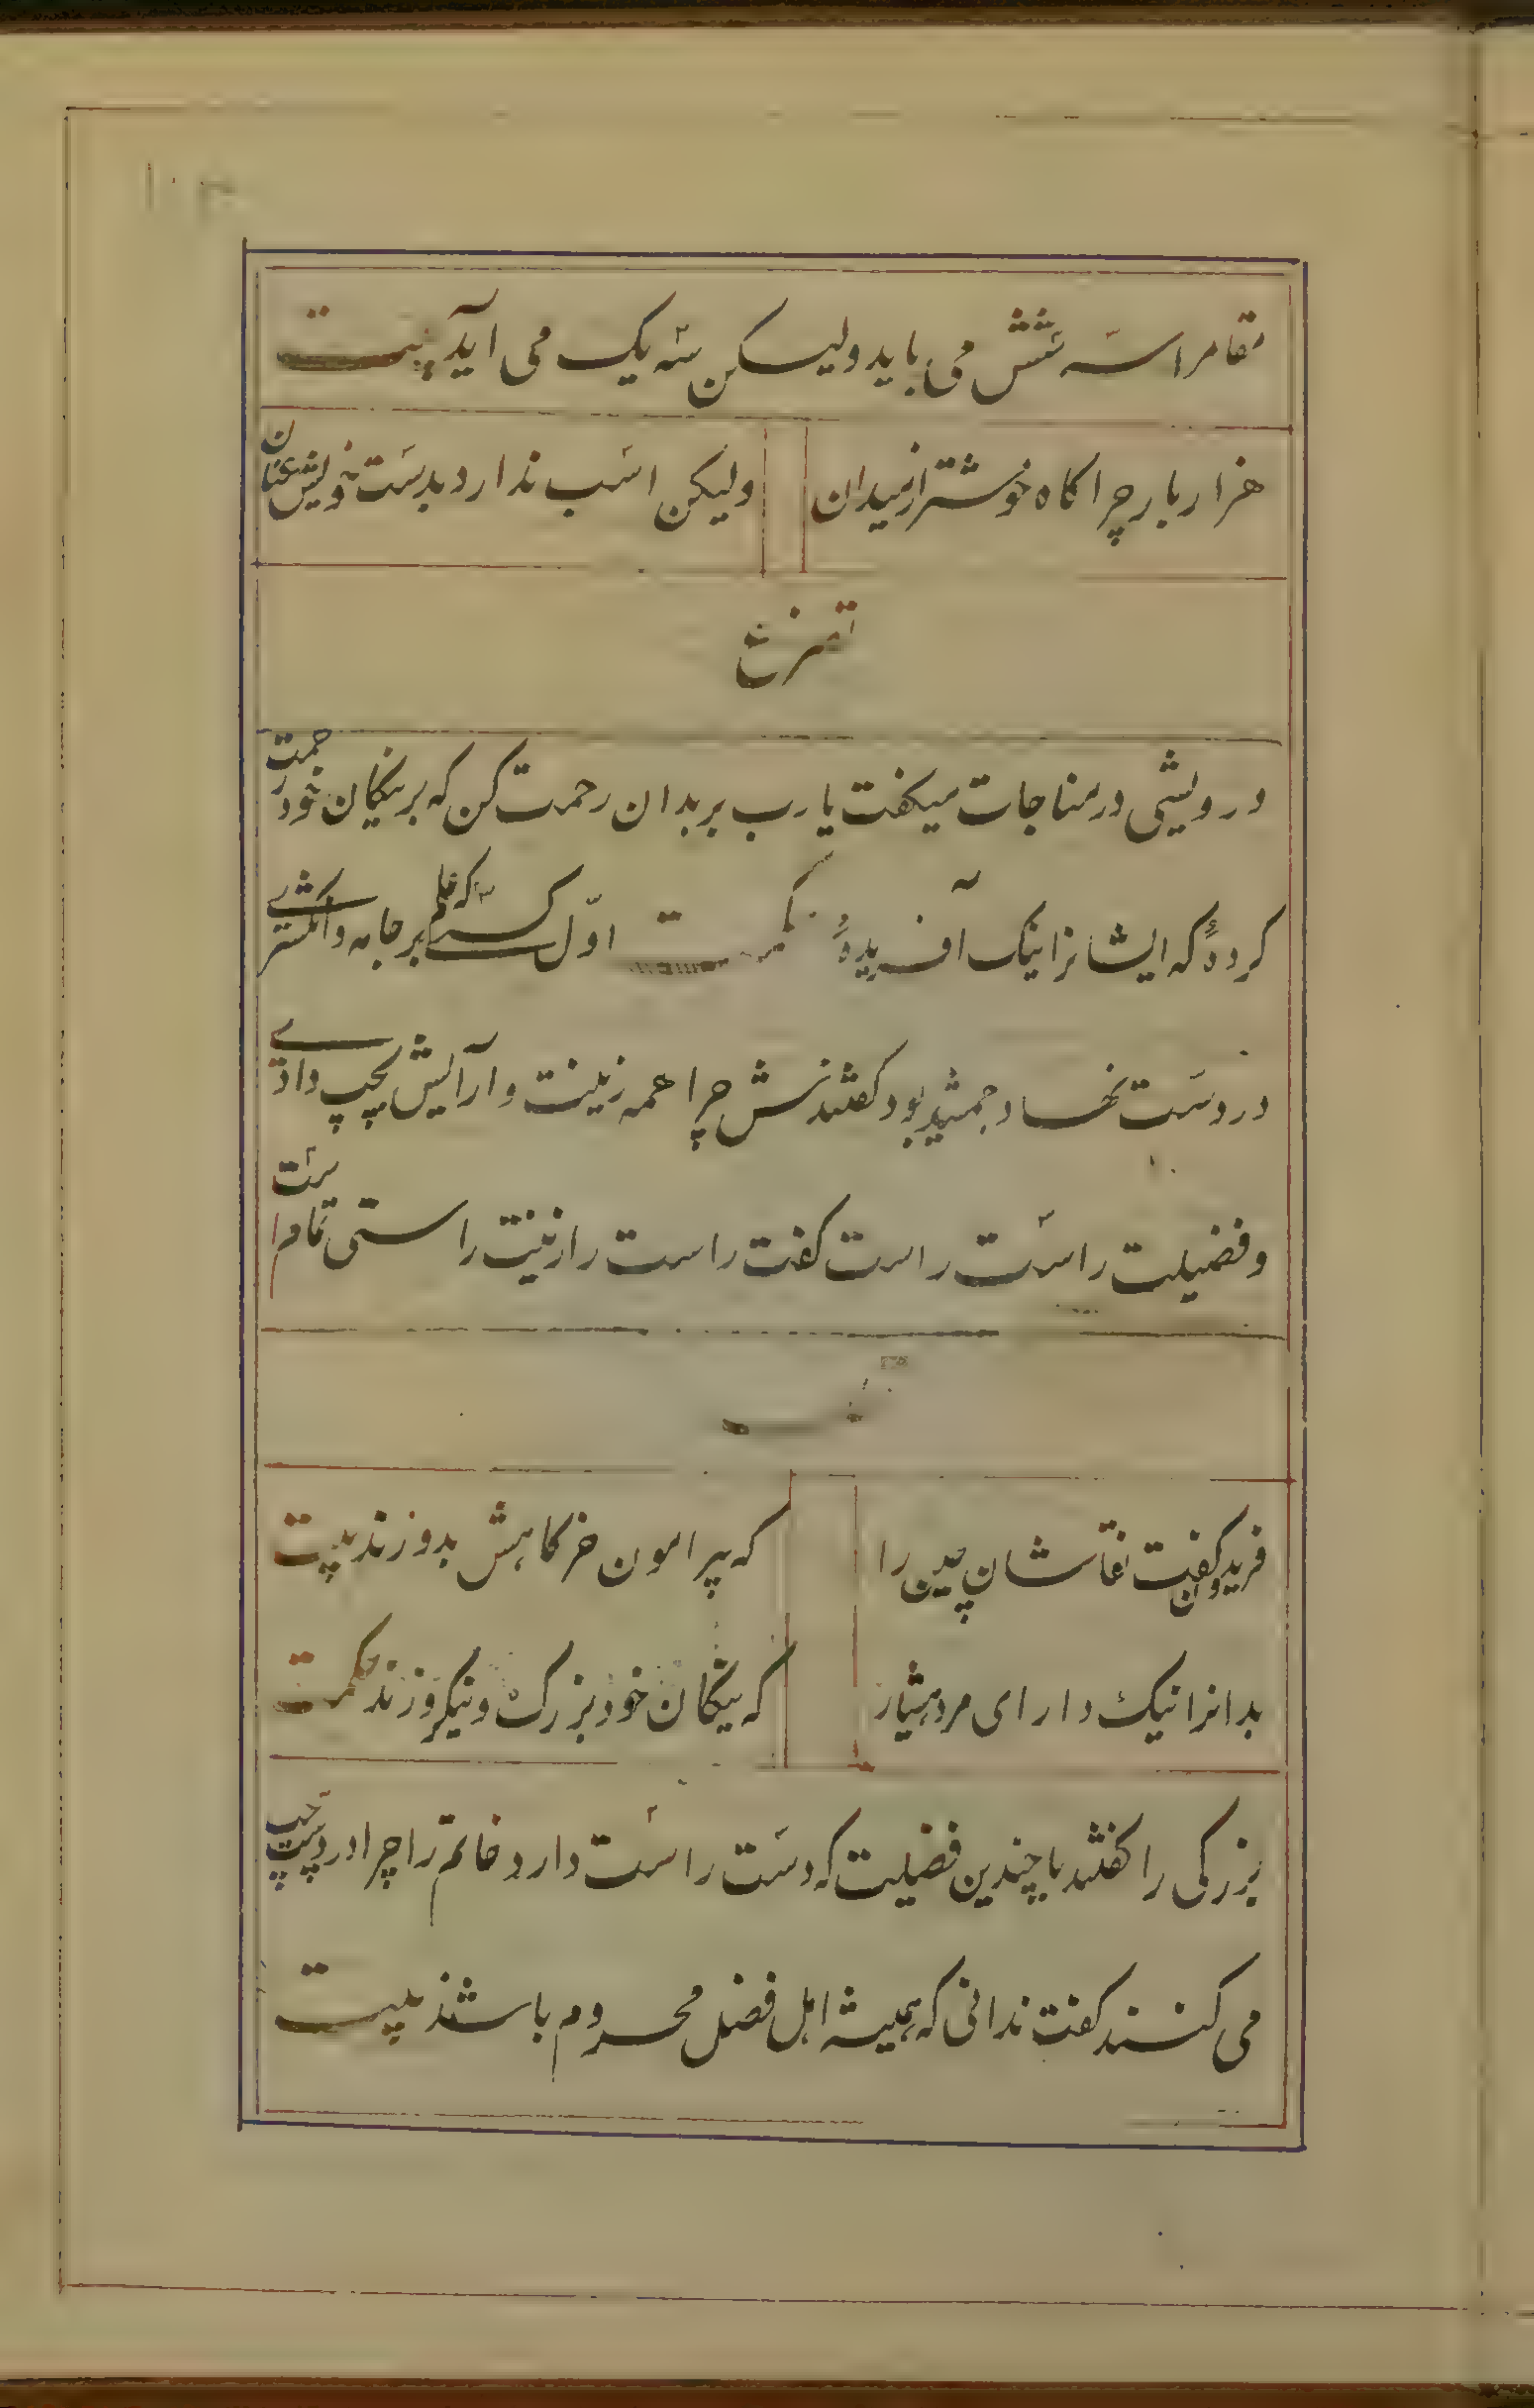 مقامرا سه شش می باید ولیکن سه یک می آید بیت
هزار بار چراکاه خوشتر از میدان
ولیکن اسب ندارد بدست خویش عنان
درویشی در مناجات میکفت یا رب بر بدان رحمت کن که بر نیکان خود رحمت
کردهٔ که ایشانرا نیک آفریدهٔ حکمت اوّل کسی که علم بر جامه و انکشتری
در دست نهاد جمشید بود کفتندش چرا همه زینت و آرایش بچپ دادی
و فضیلت راست راست کفت راست را زینت راستی تمام است
فریدون کفت نقاشان چین را
که پیرامون خرکاهش بدوزند بیت
بدانرا نیک دار ای مرد هشیار
که نیکان خود بزرک و نیکروزند حکمت
بزرکی را کفتند با چندین فضیلت که دست راست دارد خاتم را چرا در دست چپ
می کنند کفت ندانی که همیشه اهل فضل محروم باشند بیت